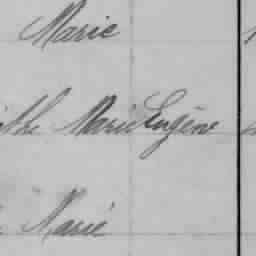 Marie
Marie Eugène
Marie